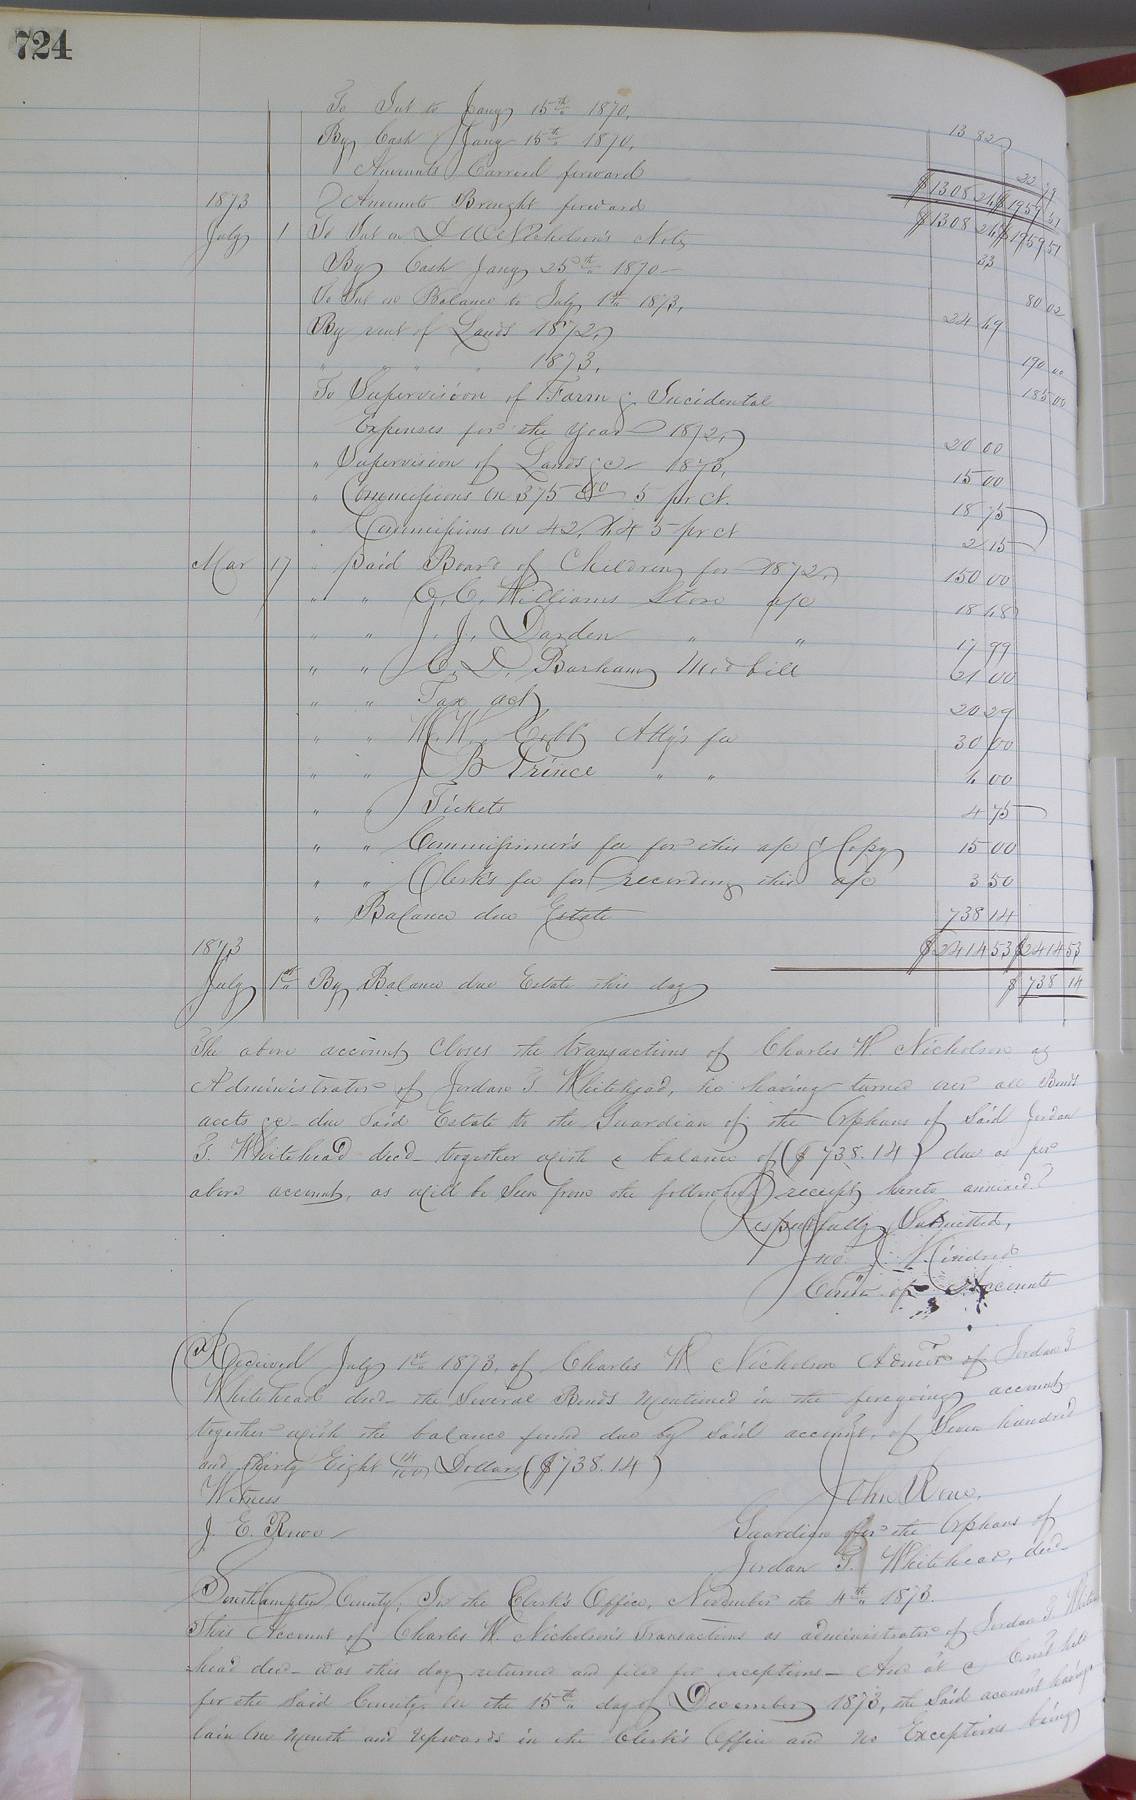 724
To Int to Jany 15th 1870, 13 82
By Cash Jany 15th 1870, 22 73
Amounts Carried forward $1308 26 $1959 51
1873 Amounts Brought forward $1308 26 $1959 51
July 1 To Int on Nicholson's Note 33
By Cash Jany 25th 1870 80 02
To Int on Balance to July 1st 1873, 24 49
By rent of Lands 1872, 190 00
" " " " 1873, 185 00
To Supervision of Farm & Incidental
Expenses for the Year 1872, 20 00
" Supervision of Lands &c 1873, 15 00
" Commissions on 375 00 5 pr ct. 18 75
" Commissions on 42, 5 pr ct 2 15
Mar 17 " paid Board of Children for 1872, 150 00
" " C. C. Williams Store a/c 18 68
" " J. J. Darden " " 17 99
" " C. D. Barham Med bill 61 00
" " Tax act 20 29
" " W. W. Cobb Atty's fee 30 00
" " J B Prince " " 6 00
" " Tickets 4 75
" " Commissioner's fee for this a/c & Copy 15 00
" " Clerk's fee for recording this a/c 3 50
" Balance due Estate 738 14
1873 $2414 53 $2414 53
July 1st By Balance due Estate this day $738 14
The above account Closes the transactions of Charles W Nicholson as
Administrator of Jordan T Whitehead, he having turned over all Bonds
accts &c due said Estate to the Guardian of the Orphans of said Jordan
T. Whitehead decd together with a balance of ($738.14) due as per
above account, as will be seen from the following receipt hereto annexed
Respectfully Submitted,
Jno. J. Kindred
Comr. of Accounts
Received July 1st 1873, of Charles W Nicholson Admr of Jordan T
Whitehead decd the several Bonds mentioned in the foregoing account
together with the balance found due by said account, of Seven hundred
and Thirty Eight 14/100 Dollars ($738.14)
Witness John Rowe.
J. E. Rowe Guardian for the Orphans of
Jordan T. Whitehead, decd
Southampton County, In the Clerk's Office, November the 4th 1873.
This Account of Charles W. Nicholson's Transactions as administrator of Jordan T White
head decd was this day returned and filed for exceptions And at a Court held
for the said County, on the 15th day of December 1873, the said account having
lain one Month and upwards in the Clerk's Office and no Exceptions being